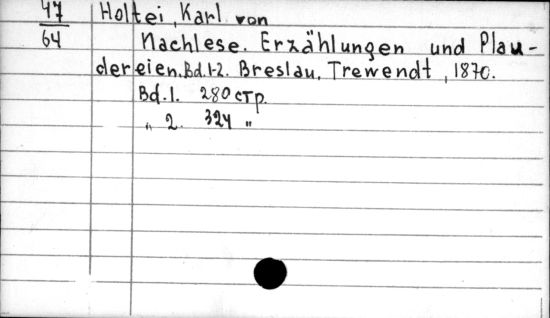 47 Holtei, Karl von
64 Nachlese. Erzählungen und Plau-
dereien. Bd. 1-2. Breslau, Trewendt, 1870.
Bd. 1. 280 стр.
„ 2. 324 „